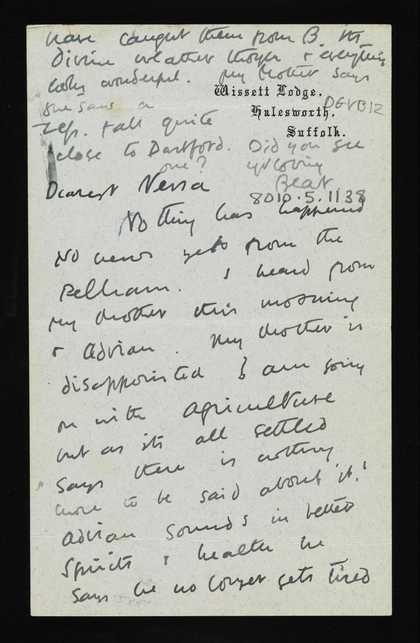 have caught them from B. its
Divine weather though & everything
looks wonderful. My Mother says
she saw a
Zep. fall quite
close to Dartford. Did you see
one? yr loving
Bear
Wissett Lodge,
Halesworth,
Suffolk.
DGVB12
8010.5.1138
Dearest Nessa
Nothing has happened
No news yet from the
Pelham. I heard from
my Mother this morning
& Adrian. My Mother is
disappointed I am going
on with agriculture
but as its all settled
says there is nothing
more to be said about it!
Adrian sounds in better
spirits & health he
says he no longer gets tired